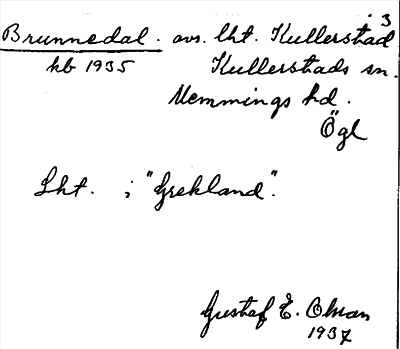 3
Brunnedal. avs. lht. Kullerstad
kb 1935 Kullerstads sn.
Memmings hd.
Ögl
Lht. i "Grekland".
Gustaf E. Olman
1937